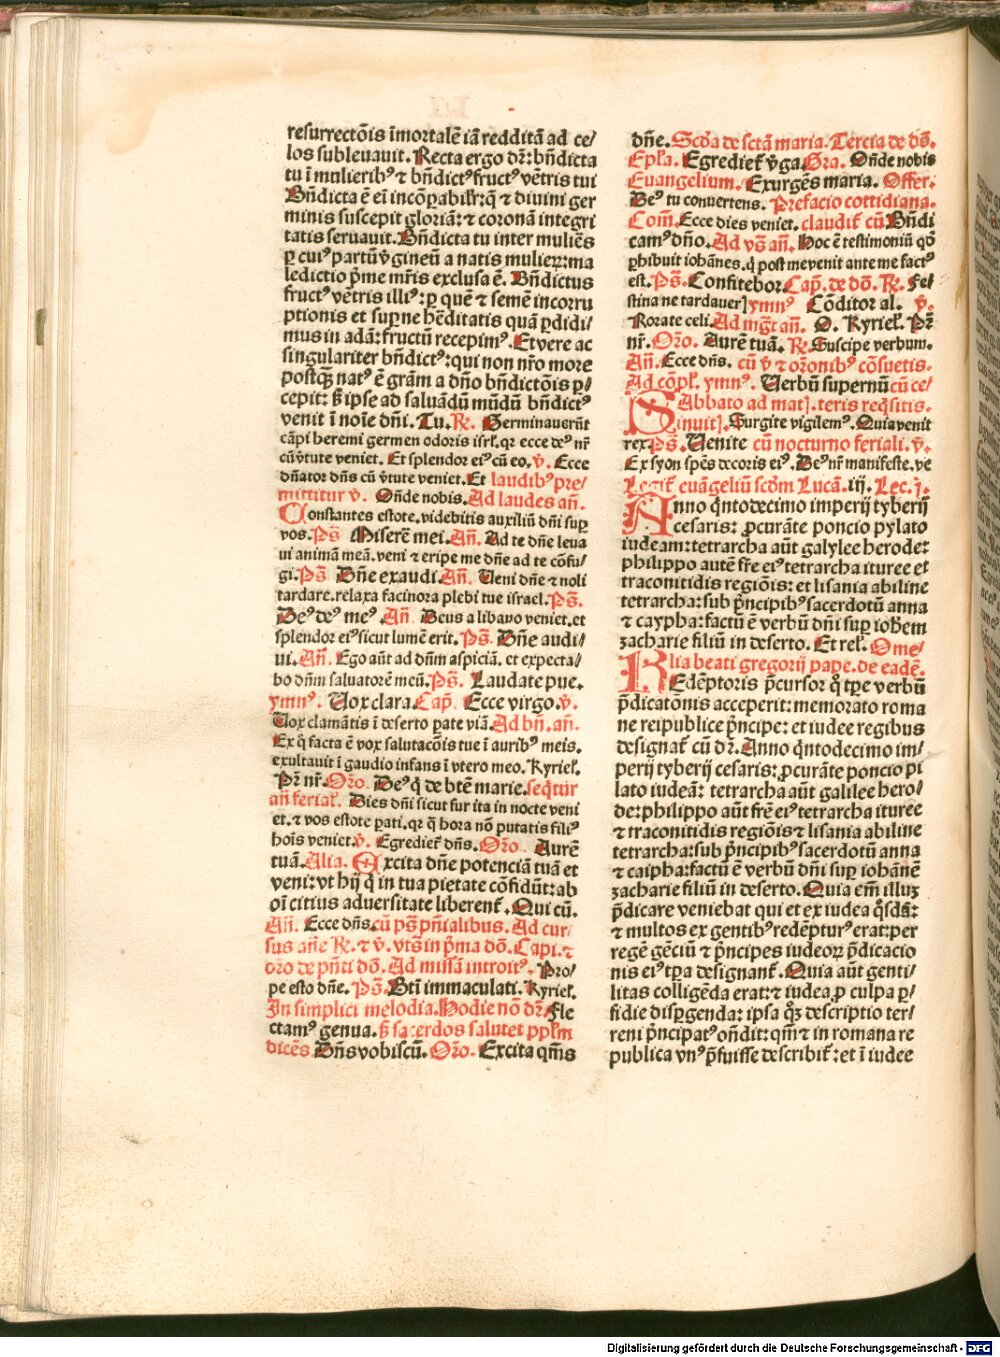 resurrectõis ĩmortalẽ iã redditã ad ce/
los subleuavit. Recta ergo dr̃: bñdicta
tu ĩ mulieribꝰ ⁊ bñdictꝰ fructꝰ vẽtris tui
Bñdicta ẽ ei incõpabilr̃: q̃ ⁊ diuini ger
minis suscepit gloriã: ⁊ coronã integri
tatis seruauit. Bñdicta tu inter muliẽs
ꝑ cuiꝰ partũ ṽgineũ a natis mulieꝝ: ma
ledictio p̃me mr̃is exclusa ẽ. Bñdictus
fructꝰ vẽtris illiꝰ: ꝑ quẽ ⁊ semẽ incorru
ptionis et supne hẽditatis quã ꝑdidi/
mus in adã: fructũ recepimꝰ. Et vere ac
singulariter bñdictꝰ: qui non nr̃o more
postqꝫ natꝰ ẽ grãm a dño bñdictõis ꝑ/
cepit: ß ipse ad saluãdũ mũdũ bñdictꝰ
venit ĩ noĩe dñi. Tu. R̃. Germinauerũt
cãpi heremi germen odoris isrl̃. qꝛ ecce deꝰ nr̃
cũ ṽtute veniet. Et splendor eiꝰ cũ eo. ṽ. Ecce
dñator dñs cũ ṽtute veniet. Et laudibꝰ pre/
mittitur ṽ. Oñde nobis. Ad laudes añ.
Constantes estote. videbitis auxiliũ dñi suꝑ
vos. Ps̃ Miserẽ mei. Añ. Ad te dñe leua
ui animã meã. veni ⁊ eripe me dñe ad te cõfu/
gi. Ps̃ Dñe exaudi. Añ. Veni dñe ⁊ noli
tardare. relaxa facinora plebi tue israel. Ps̃.
Deꝰ deꝰ meꝰ. Añ Deus a libano veniet. et
splendor eiꝰ sicut lumẽ erit. Ps̃. Dñe audi/
ui. Añ. Ego aũt ad dñm aspiciã. et expecta/
bo dñm saluatorẽ meũ. Ps̃. Laudate pue.
ymnꝰ. Vox clara. Cap̃. Ecce virgo. ṽ.
Vox clamãtis ĩ deserto parate viã. Ad bñ. añ.
Ex q̃ facta ẽ vox salutacõis tue ĩ auribꝰ meis.
exultauit ĩ gaudio infans ĩ vtero meo. Kyriel̃.
Pr̃ nr̃. Oro. Deꝰ q̃ de btẽ marie. seq̃tur
añ ferial̃. Dies dñi sicut fur ita in nocte veni
et. ⁊ vos estote pati. qꝛ q̃ hora nõ putatis filiꝰ
hoĩs veniet. ṽ. Egrediet̃ dñs. Oro. Aurẽ
tuã. Alia. Excita dñe potenciã tuã et
veni: vt hij q̃ in tua pietate cõfidũt: ab
oĩ citius aduersitate liberent̃. Qui cũ.
Añ. Ecce dñs. cũ ps̃ pñialibus. Ad cur/
sus añe R̃. ⁊ ṽ. vts̃ in p̃ma dõ. Capi. ⁊
oro de pñti dõ. Ad missã introitꝰ. Pro/
pe esto dñe. Ps̃. Bti immaculati. Kyriel̃.
In simplici melodia. Hodie nõ dr̃. Fle
ctamꝰ genua. ß sacerdos salutet pplm
dicẽs. Dñs vobiscũ. Oro. Excita qm̃s
dñe. Scd̃a de sctã maria. Tercia de dñs.
Epl̃a. Egrediet̃ ṽga. Gra. Oñde nobis
Euangelium. Exurgẽs maria. Offer.
Deꝰ tu conuertens. Prefacio cottidiana.
Com̃. Ecce dies veniet. claudit̃ cũ Bñdi
camꝰ dño. Ad vs̃ añ. Hoc ẽ testimoniũ qõ
ꝑhibuit iohãnes. q̃ post me venit ante me factꝰ
est. Ps̃. Confitebor. Cap̃. de dõ. R̃. Fe/
stina ne tardauerꝭ ymnꝰ Cõditor al. ṽ.
Rorate celi. Ad mg̃t añ. O. Kyriel̃. Pr̃
nr̃. Oro. Aurẽ tuã. R̃. Suscipe verbum.
Añ. Ecce dñs. cũ ṽ ⁊ orõnibꝰ cõsuetis.
Ad cõpl̃. ymnꝰ. Verbũ supernũ cũ ce/
Sabbato ad matꝭ. teris reqsitis.
inuitꝭ. Surgite vigilemꝰ. Quia venit
rex. Ps̃. Venite cũ nocturno feriali. ṽ.
Ex syon spẽs decoris eiꝰ. Deꝰ nr̃ manifeste. ve
Legit̃ euãgeliũ scdm Lucã. iij. Lec. j.
Anno q̃ntodecimo imperij tyberij
cesaris: ꝓcurãte poncio pylato
iudeam: tetrarcha aũt galylee herode:
philippo autẽ fre eiꝰ tetrarcha ituree et
traconitidis regiõis: et lisania abiline
tetrarcha: sub p̃ncipibꝰ sacerdotũ anna
⁊ caypha: factũ ẽ verbũ dñi suꝑ iohem
zacharie filiũ in deserto. Et rel̃. Ome/
lia beati gregorij pape. de eadẽ.
REdẽptoris p̃cursor q̃ tꝑe verbũ
p̃dicatõnis acceperit: memorato roma
ne reipublice p̃ncipe: et iudee regibus
designat̃ cũ dr̃. Anno q̃ntodecimo im/
perij tyberij cesaris: ꝓcurãte poncio pi
lato iudeã: tetrarcha aũt galilee hero/
de: philippo aũt frẽ eiꝰ tetrarcha ituree
⁊ traconitidis regiõis ⁊ lisania abiline
tetrarcha: sub p̃ncipibꝰ sacerdotũ anna
⁊ caipha: factũ ẽ verbũ dñi suꝑ iohãnẽ
zacharie filiũ in deserto. Quia em̃ illuꝫ
p̃dicare veniebat qui et ex iudea q̃sdã:
⁊ multos ex gentibꝰ redẽpturꝰ erat: per
regẽ gẽciũ ⁊ p̃ncipes iudeoꝝ p̃dicacio
nis eiꝰ tꝑa designant̃. Quia aũt genti/
litas colligẽda erat: ⁊ iudea ꝓ culpa ꝑ/
fidie dispgenda: ipsa qꝫ descriptio ter/
reni p̃ncipatꝰ oñdit: qm̃ ⁊ in romana re
publica vnꝰ p̃fuisse describit̃: et ĩ iudee
Digitalisierung gefördert durch die Deutsche Forschungsgemeinschaft - DFG